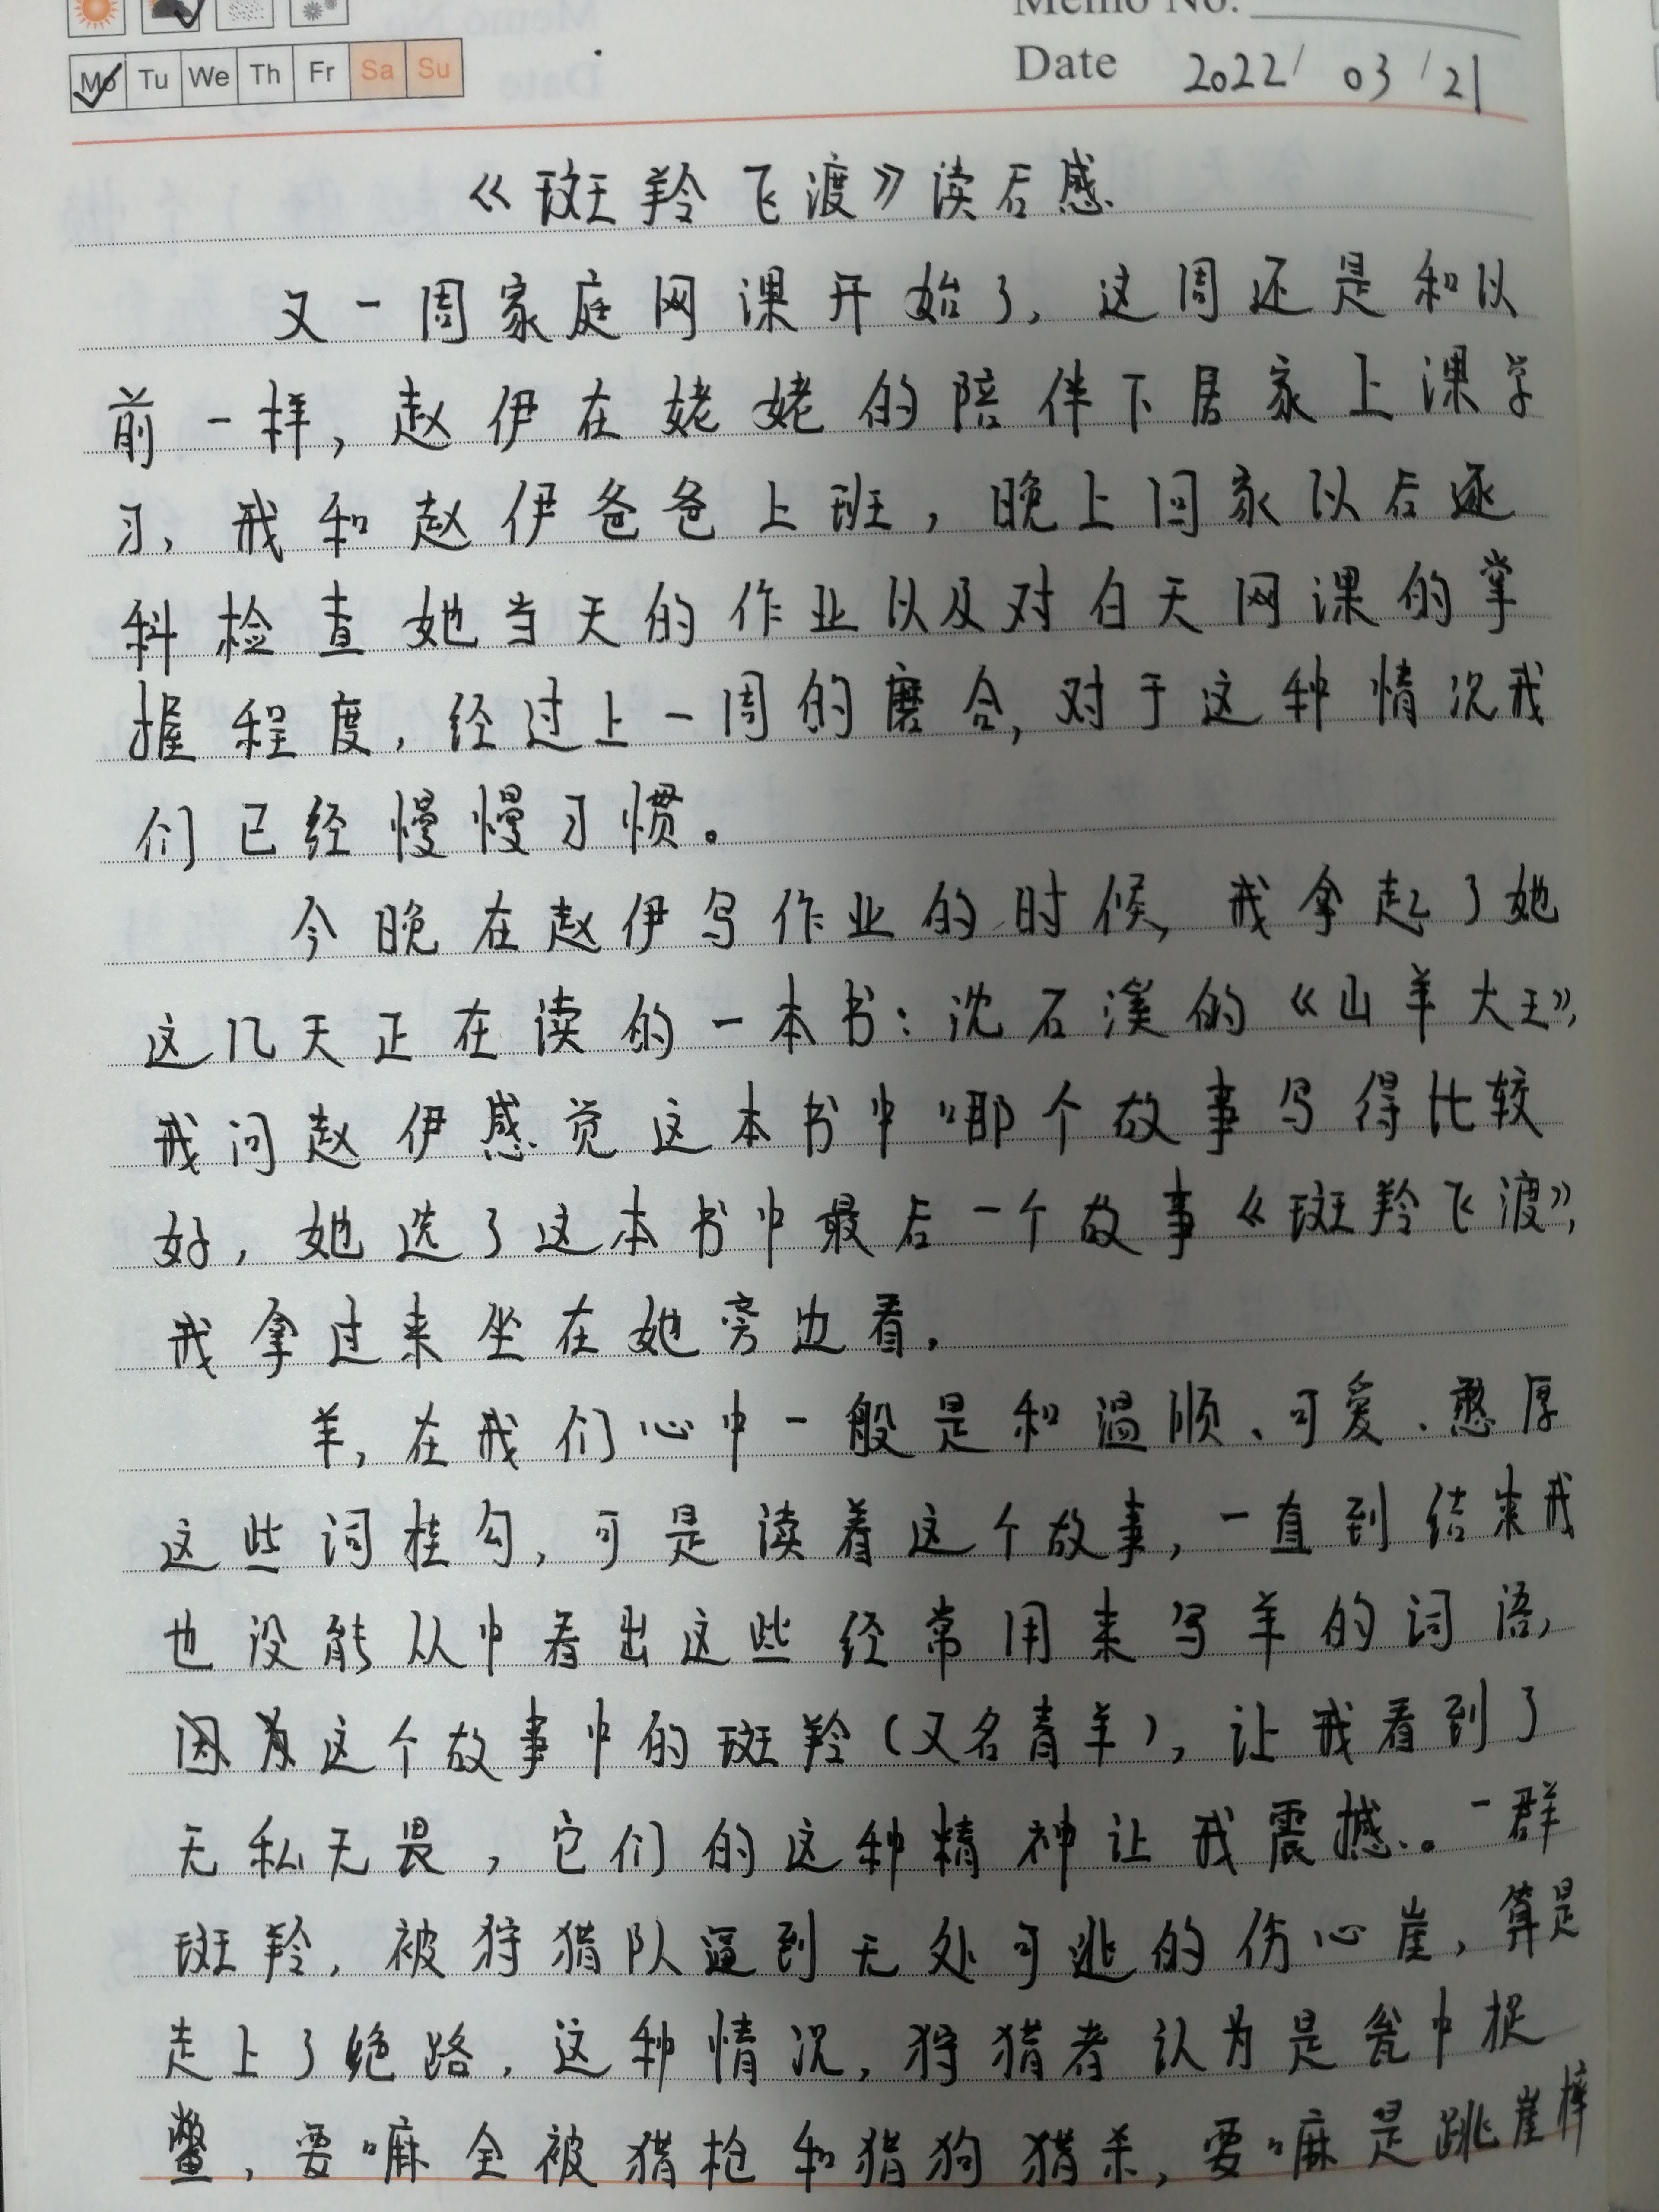 Memo No.
Mo Tu We Th Fr Sa Su
Date 2022/03/21
《斑羚飞渡》读后感
又一周家庭网课开始了,这周还是和以
前一样,赵伊在姥姥的陪伴下居家上课学
习,我和赵伊爸爸上班,晚上回家以后逐
科检查她当天的作业以及对白天网课的掌
握程度,经过上一周的磨合,对于这种情况我
们已经慢慢习惯。
今晚在赵伊写作业的时候,我拿起了她
这几天正在读的一本书:沈石溪的《山羊大王》,
我问赵伊感觉这本书中哪个故事写得比较
好,她选了这本书中最后一个故事《斑羚飞渡》,
我拿过来坐在她旁边看。
羊,在我们心中一般是和温顺、可爱、憨厚
这些词挂勾,可是读着这个故事,一直到结束我
也没能从中看出这些经常用来写羊的词语,
因为这个故事中的斑羚(又名青羊),让我看到了
无私无畏,它们的这种精神让我震撼。一群
斑羚,被狩猎队逼到无处可逃的伤心崖,算是
走上了绝路,这种情况,狩猎者认为是瓮中捉
鳖,要嘛全被猎枪和猎狗猎杀,要嘛是跳崖摔